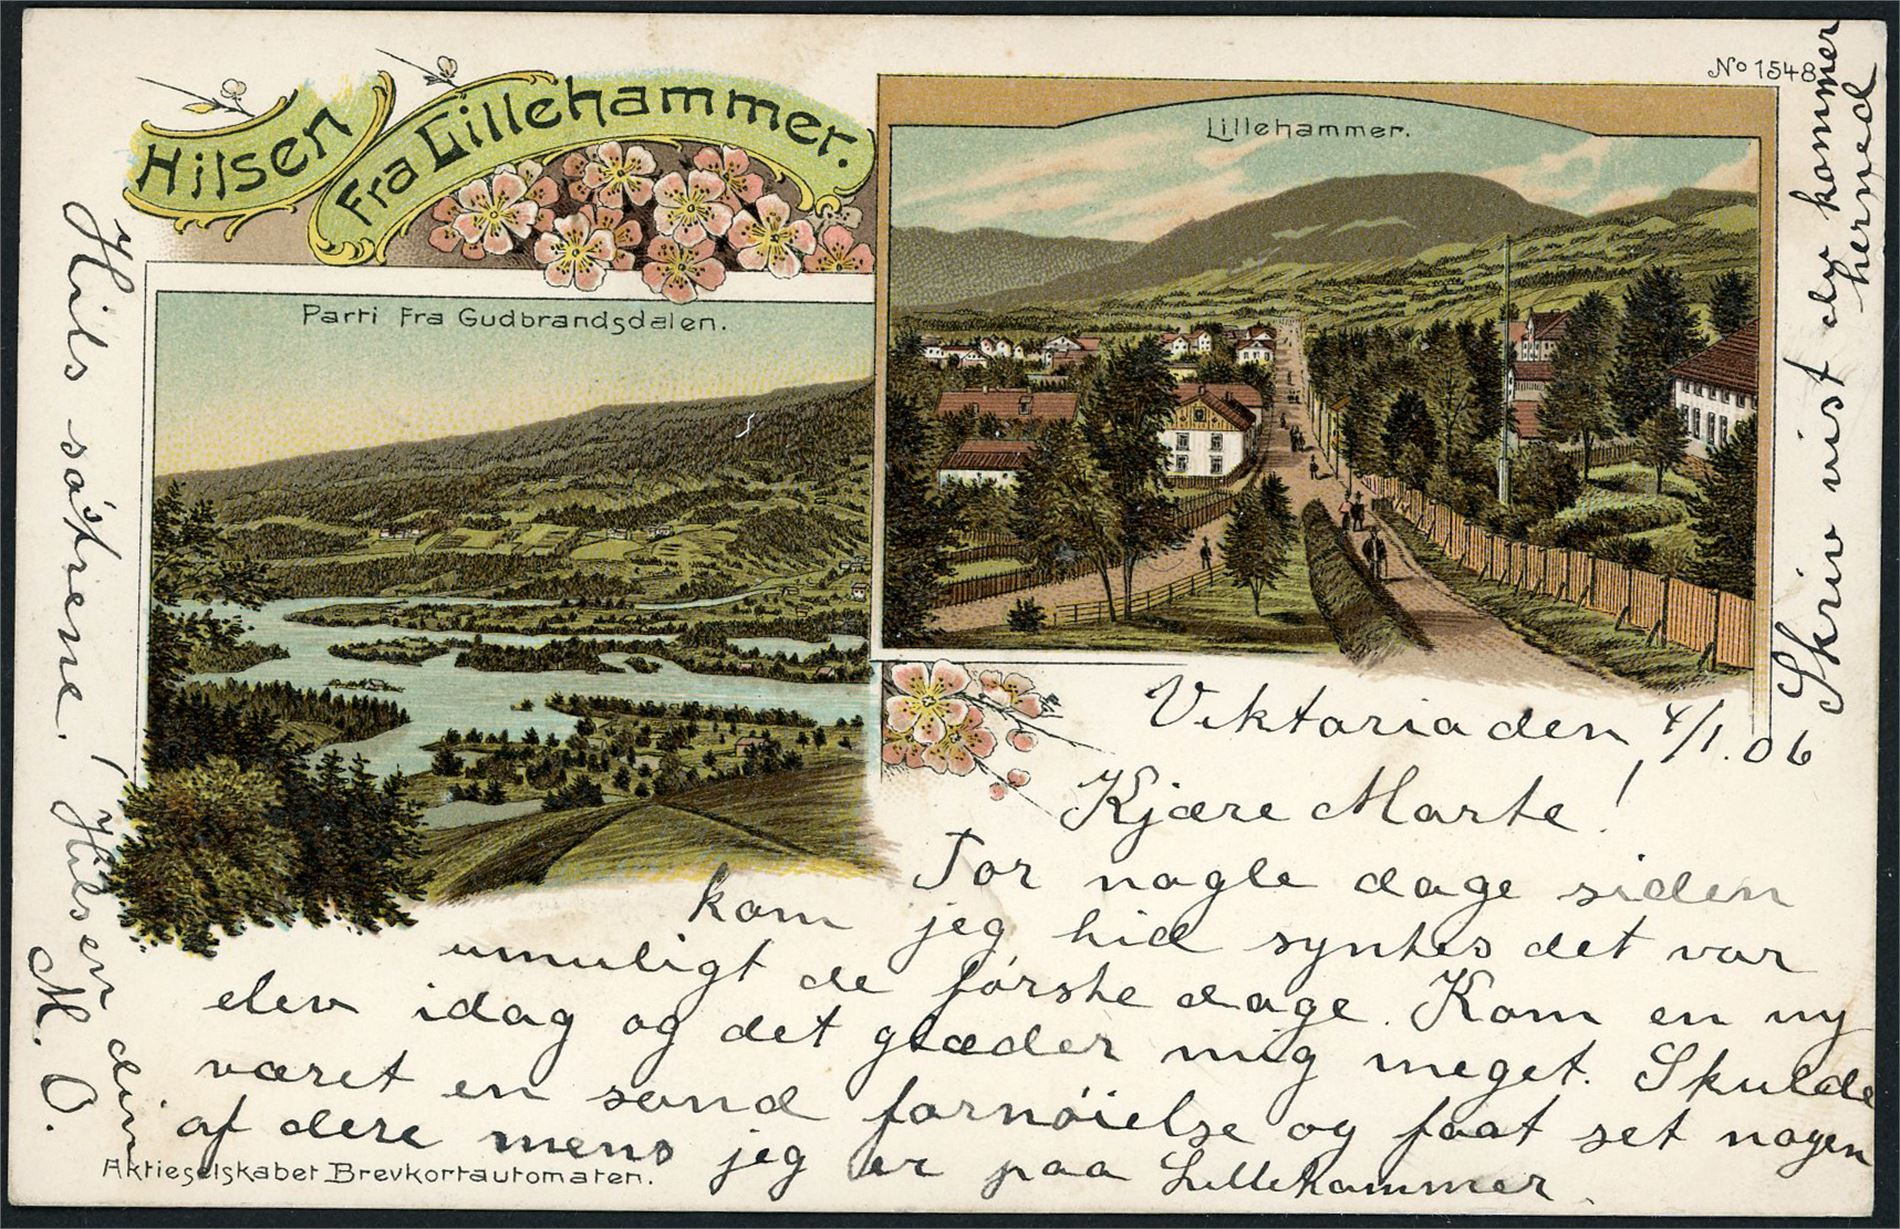 No 1548
Hilsen
Fra Lillehammer.
Lillehammer.
Parti Fra Gudbrandsdalen.
Viktoria den 4/1. 06
Kjære Marte!
For nogle dage siden
kom jeg hid syntes det var
umuligt de første dage. Kom en ny
elev idag og det glæder mig meget. Skulde
været en sand fornøielse og faat set nogen
af dere mens jeg er paa Lillehammer.
Skriv vist der kommer
herned
Hils søstrene! Hilsen din
M. O.
Aktieselskabet Brevkortautomaten.